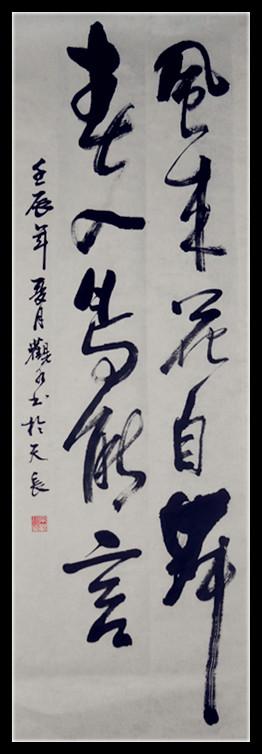 風来花自舞
春入鳥能言
壬辰年夏月觀水书於天長